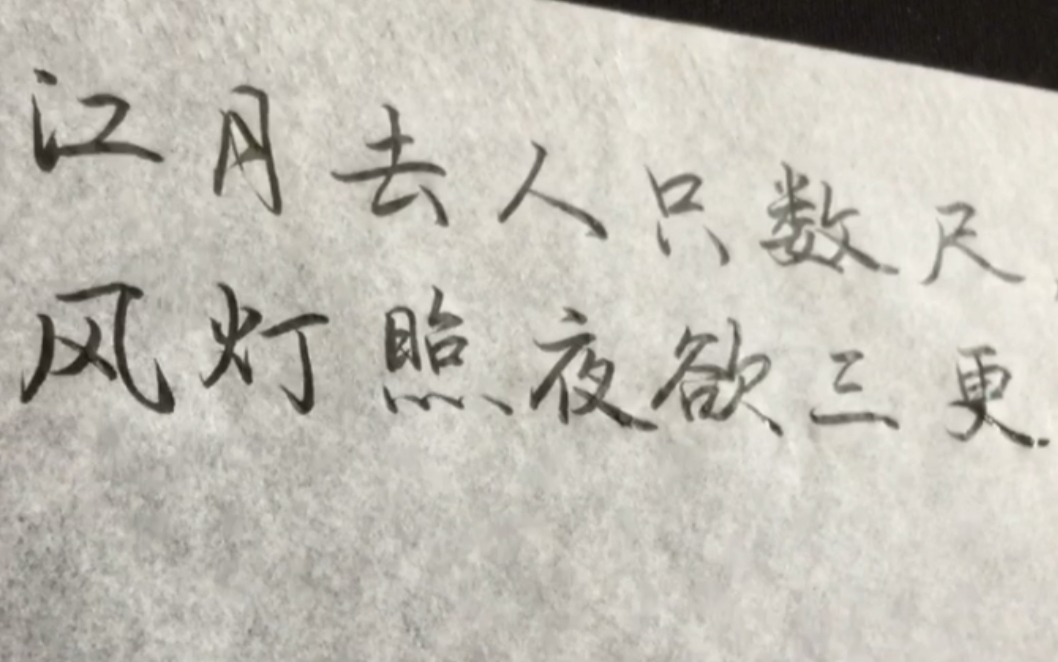 江月去人只数尺
风灯照夜欲三更.